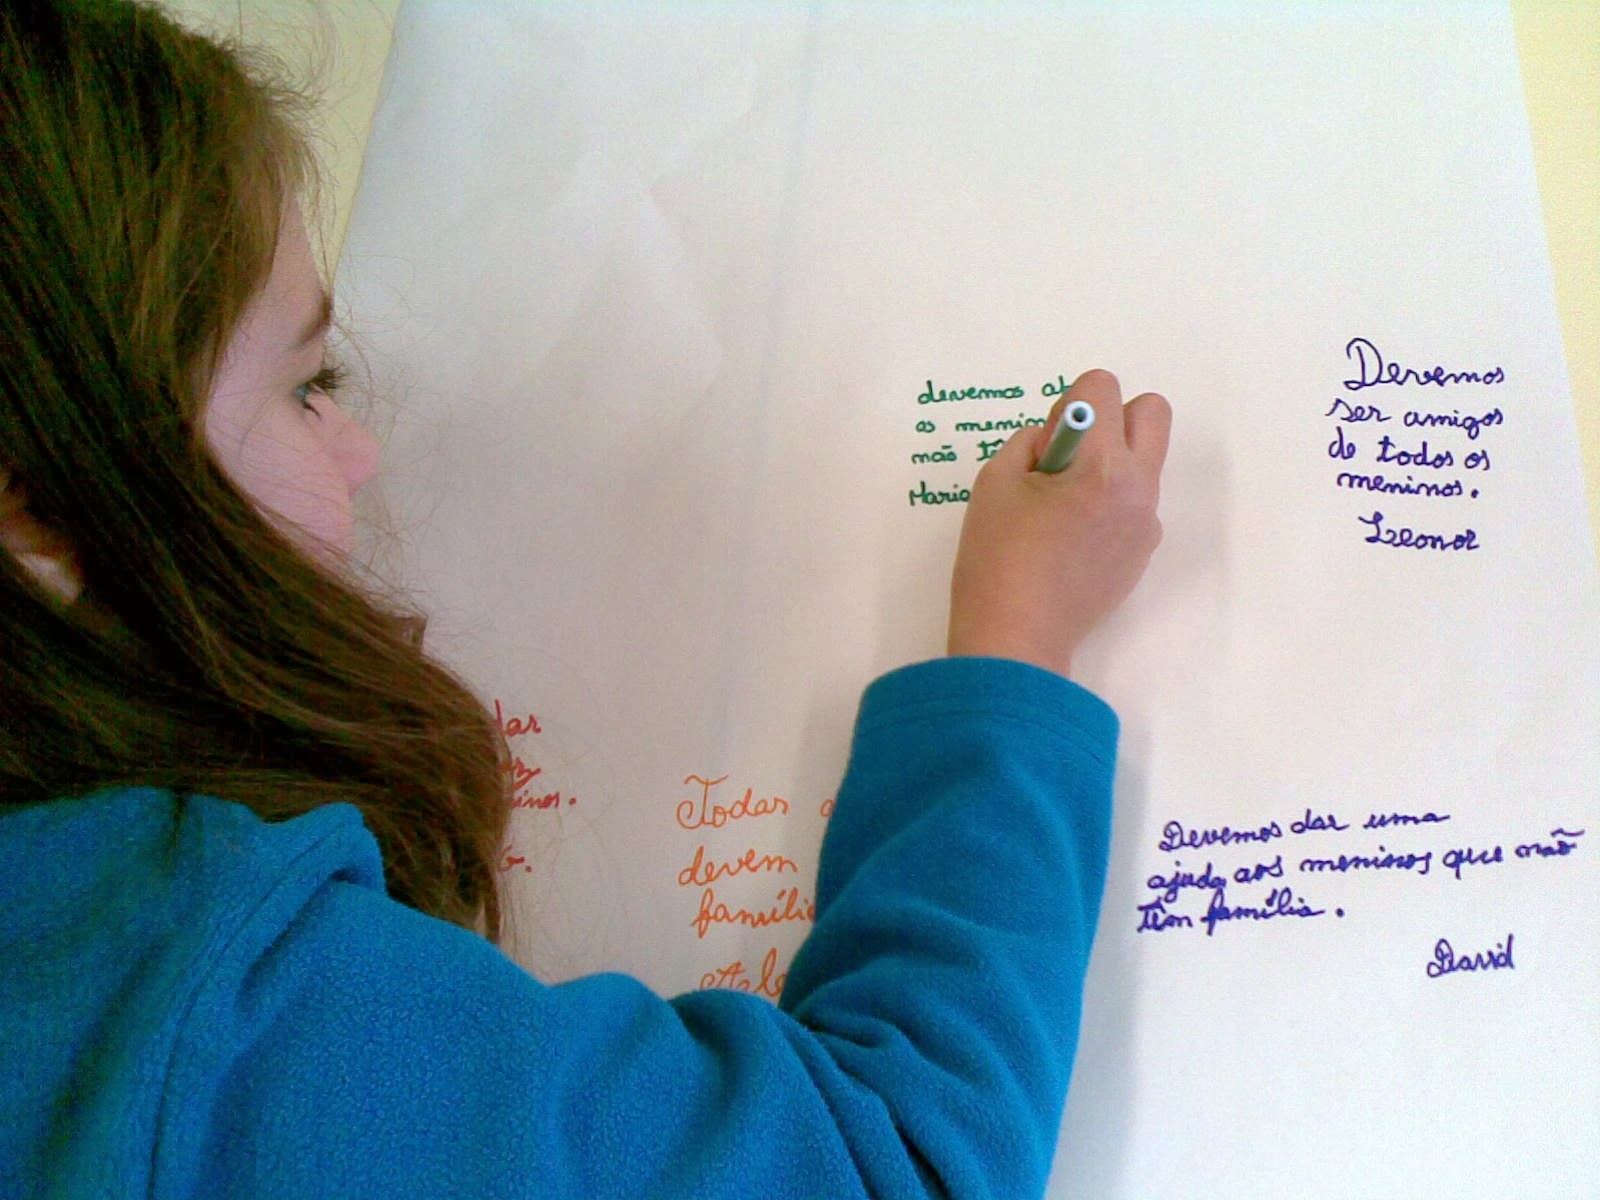 devemos
os
não
Maria
Devemos
ser amigos
de todos os
meninos.
Leonor
dar
Todas
devem
família
Devemos dar uma
ajuda aos meninos que não
têm família.
David